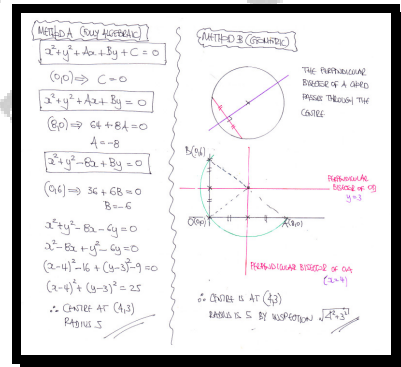 METHOD A (FULLY ALGEBRAIC)
x²+y²+Ax+By+C = 0
(0,0) ⇒ C=0
x²+y²+Ax+By = 0
(8,0) ⇒ 64+8A=0
A=-8
x²+y²-8x+By=0
(0,6) ⇒ 36+6B=0
B=-6
x²+y²-8x-6y=0
x²-8x+y²-6y=0
(x-4)²-16+(y-3)²-9=0
(x-4)²+(y-3)²=25
∴ CENTRE AT (4,3)
RADIUS 5
METHOD B (GEOMETRIC)
THE PERPENDICULAR
BISECTOR OF A CHORD
PASSES THROUGH THE
CENTRE
B(0,6)
PERPENDICULAR
BISECTOR OF OB
y=3
O(0,0)
A(8,0)
PERPENDICULAR BISECTOR OF OA
(x=4)
∴ CENTRE IS AT (4,3)
RADIUS IS 5 BY INSPECTION √4²+3²